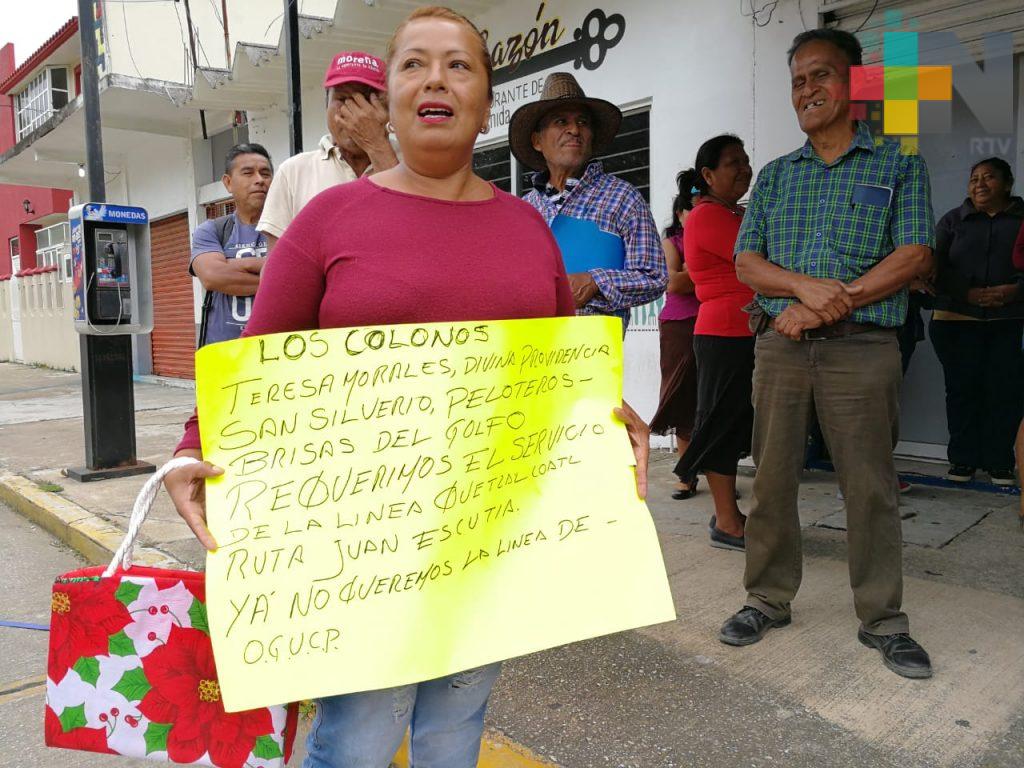 LOS COLONOS
TERESA MORALES, DIVINA PROVIDENCIA
SAN SILVERIO, PELOTEROS -
BRISAS DEL GOLFO
REQUERIMOS EL SERVICIO
DE LA LINEA QUETZALCOATL
RUTA JUAN ESCUTIA.
YÁ NO QUEREMOS LA LINEA DE -
O.G.U.C.P.
morena
MONEDAS
azón
RTV